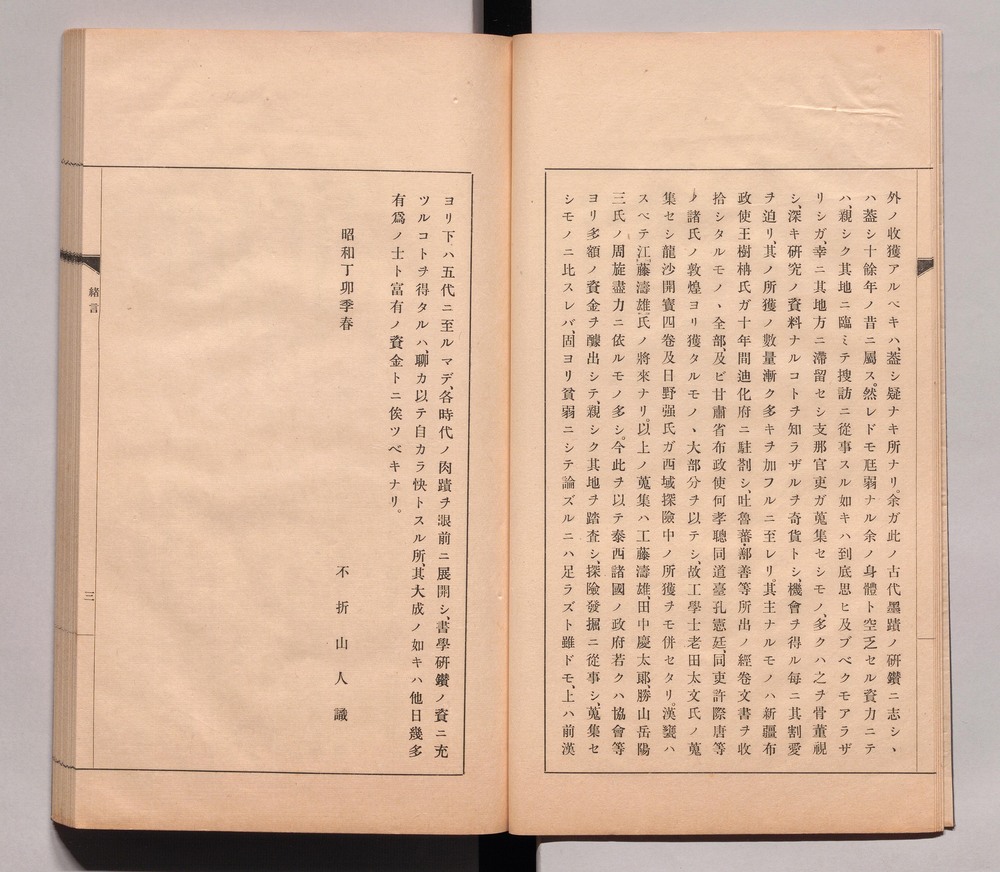 外ノ收獲アルベキハ、蓋シ疑ナキ所ナリ。余ガ此ノ古代墨蹟ノ研鑽ニ志シヽ
ハ蓋シ十餘年ノ昔ニ屬ス。然レドモ尫弱ナル余ノ身體ト空乏セル資力ニテ
ハ、親シク其地ニ臨ミテ搜訪ニ從事スル如キハ到底思ヒ及ブベクモアラザ
リシガ、幸ニ其地方ニ滯留セシ支那官吏ガ蒐集セシモノ、多クハ之ヲ骨董視
シ、深キ研究ノ資料ナルコトヲ知ラザルヲ奇貨トシ、機會ヲ得ル每ニ其割愛
ヲ迫リ、其ノ所獲ノ數量漸ク多キヲ加フルニ至レリ。其主ナルモノハ新疆布
政使王樹枏氏ガ十年間迪化府ニ駐劄シ、吐魯蕃・鄯善等所出ノ經卷文書ヲ收
拾シタルモノヽ全部、及ビ甘肅省布政使何孝聰同道臺孔憲廷、同吏許際唐等
ノ諸氏ノ敦煌ヨリ獲タルモノヽ大部分ヲ以テシ、故工學士老田太文氏ノ蒐
集セシ龍沙開寶四卷及日野强氏ガ西域探險中ノ所獲ヲモ併セタリ。漢甕ハ
スベテ江藤濤雄氏ノ將來ナリ。以上ノ蒐集ハ工藤濤雄、田中慶太郞、勝山岳陽
三氏ノ周旋盡力ニ依ルモノ多シ。今此ヲ以テ泰西諸國ノ政府若クハ協會等
ヨリ多額ノ資金ヲ釀出シテ、親シク其地ヲ踏査シ、探險發掘ニ從事シ、蒐集セ
シモノニ比スレバ、固ヨリ貧弱ニシテ論ズルニハ足ラズト雖ドモ、上ハ前漢
ヨリ下ハ五代ニ至ルマデ、各時代ノ肉蹟ヲ眼前ニ展開シ、書學硏鑽ノ資ニ充
ツルコトヲ得タルハ、聊カ以テ自カラ快トスル所、其大成ノ如キハ他日幾多
有爲ノ士ト富有ノ資金トニ俟ツベキナリ。
昭和丁卯季春
不折山人識
緖言
三